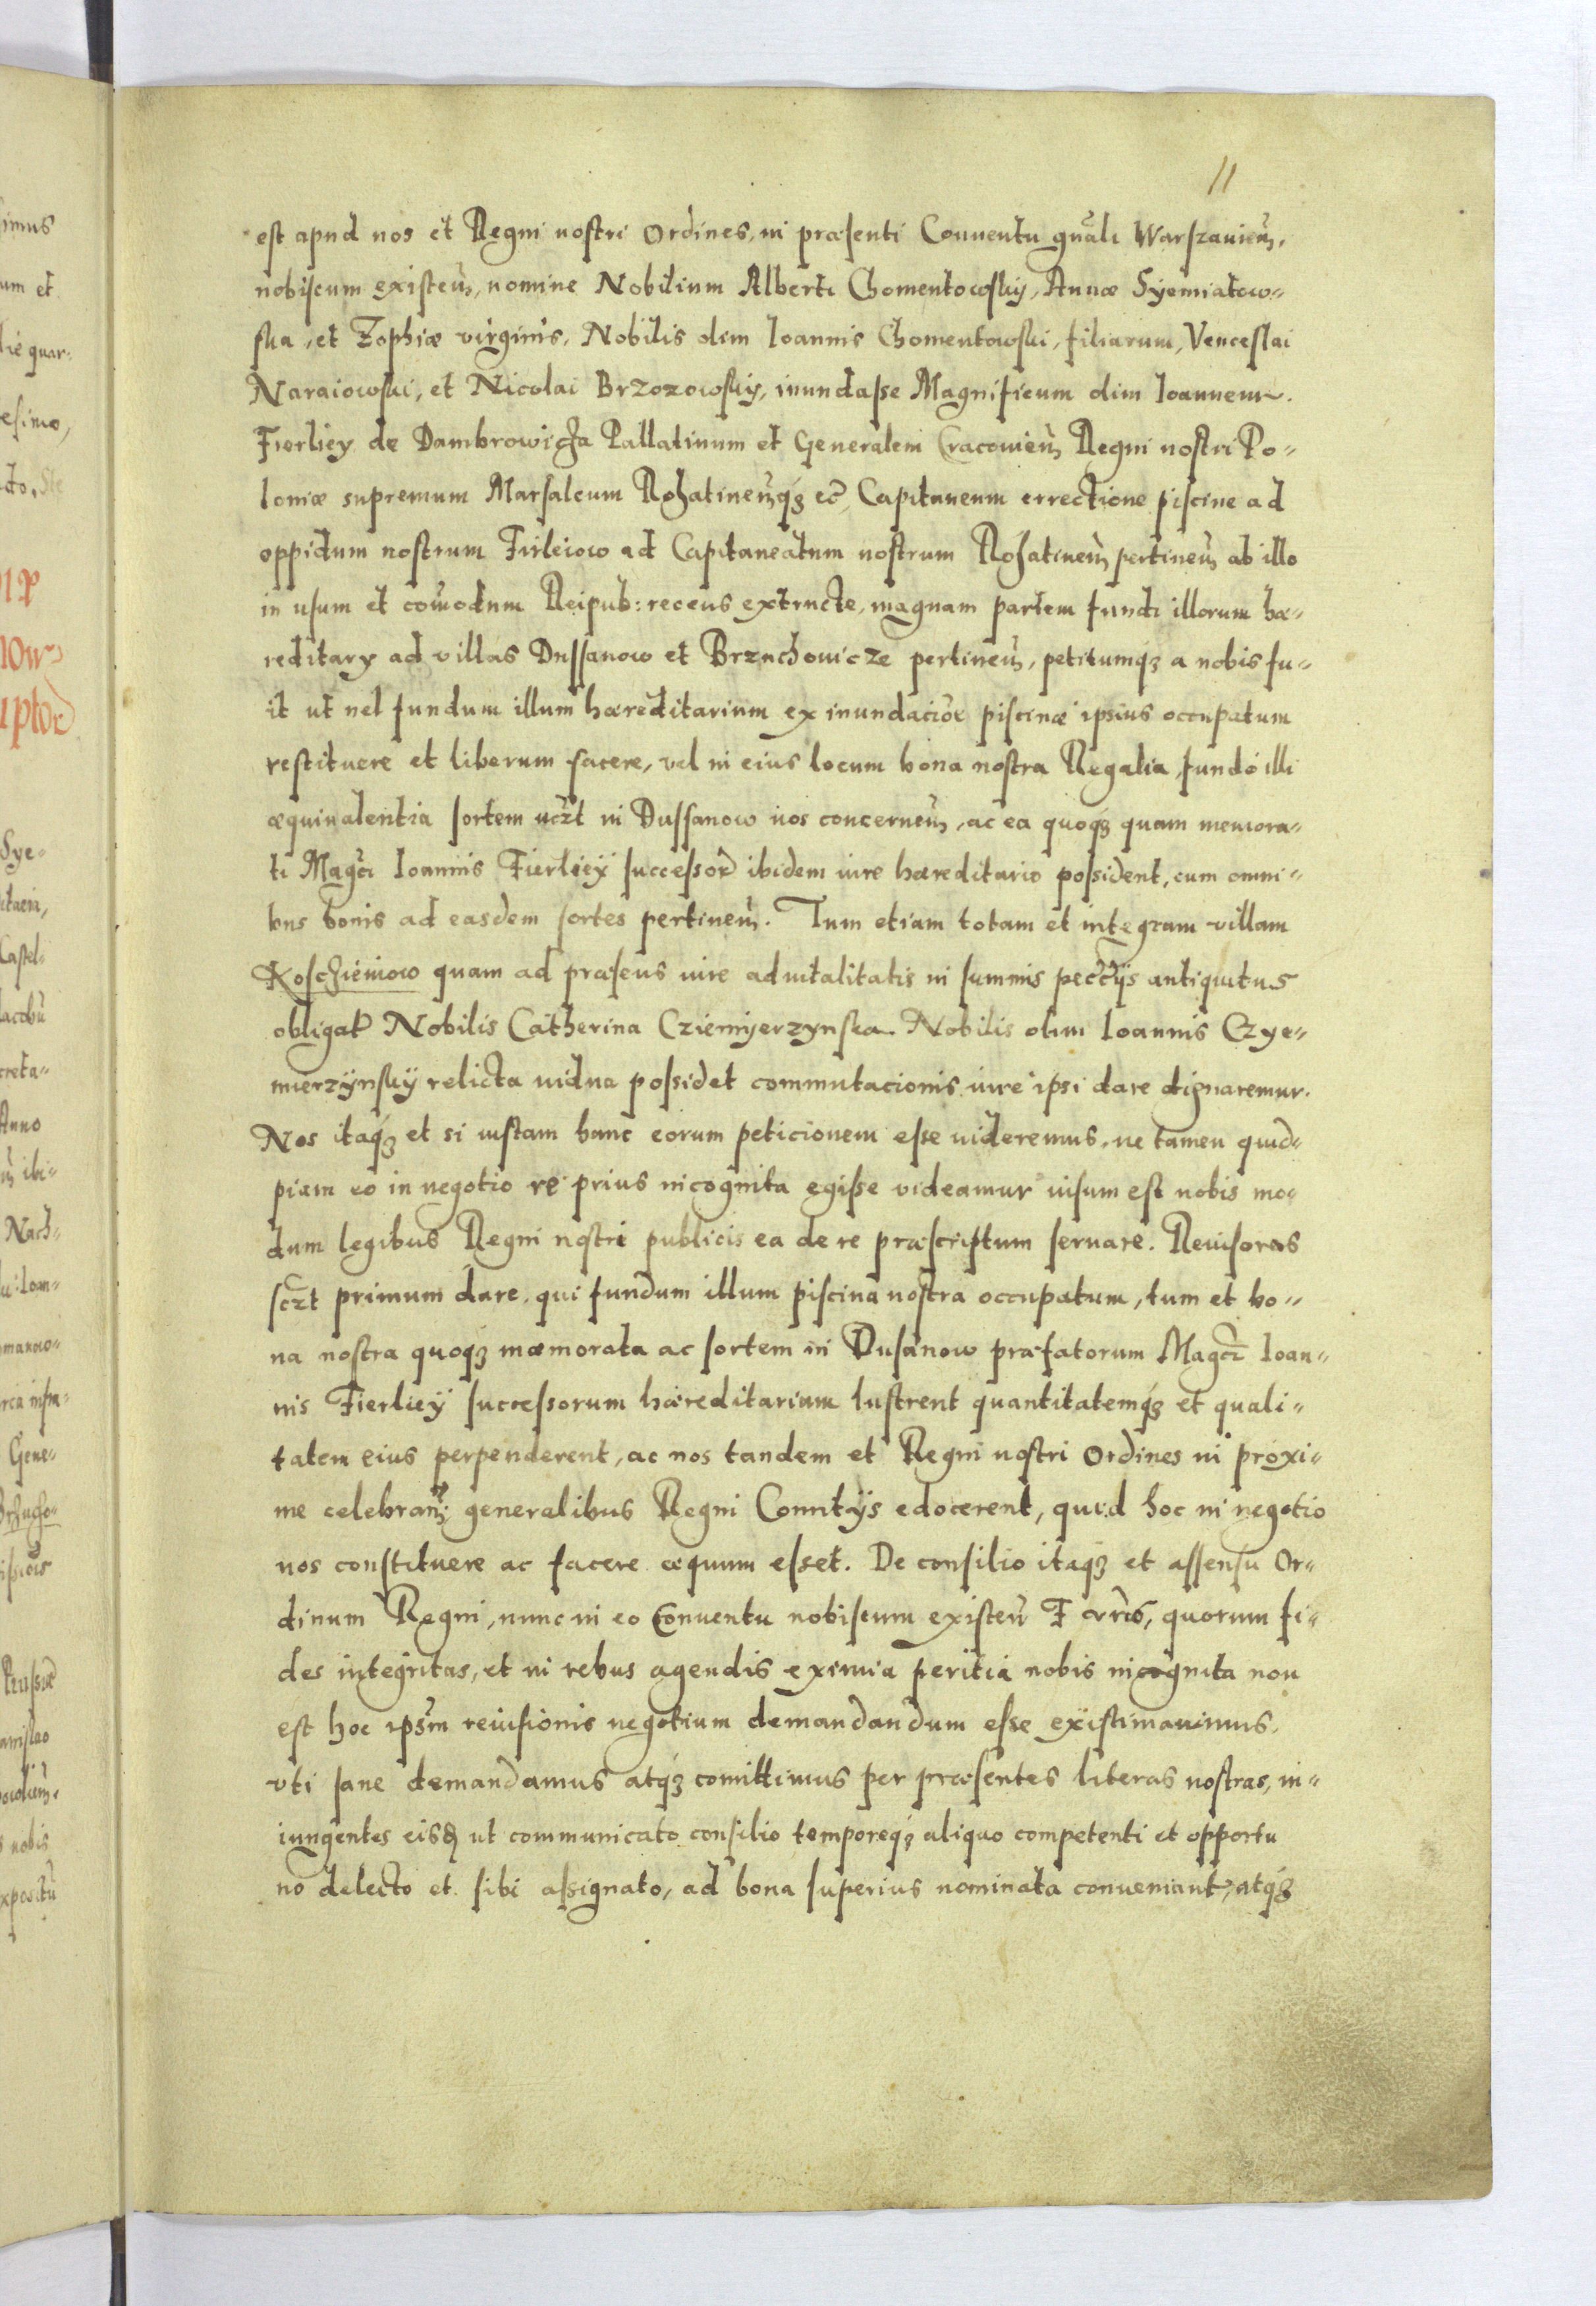 11
est apud nos et Regni nostri Ordines, in præsenti Conuentu gnãli Warszauieñ,
nobiscum existeñ, nomine Nobilium Alberti Chomentowskij, Annæ Syemiatow-
ska, et Zophiæ virginis, Nobilis olim Ioannis Chomentowski, filiarum, Venceslai
Naraiowski, et Nicolai Brzozowskij, inundasse Magnificum olim Ioannem
Fierliey de Dambrowicza Pallatinum et Generalem Cracouieñ Regni nostri Po-
loniæ supremum Marsalcum Rohatineñqʒ ec̃ Capitaneum errectione piscine ad
oppidum nostrum Firleiow ad Capitaneatum nostrum Rohatineñ pertineñ ab illo
in usum et com̃odum Reipub: recens extructe, magnam partem fundi illorum hæ-
reditary ad villas Dussanow et Brzuchouicze pertineñ, petitumqʒ a nobis fu-
it ut uel fundum illum hæreditarium ex inundaciõe piscinæ ipsius occupatum
restituere et liberum facere, vel in eius locum bona nostra Regalia, fundo illi
æquiualentia sortem uc̃zt in Dussanow nos concerneñ, ac ea quoqʒ quam memora-
ti Magc̃i Ioannis Fierliey successor̃ ibidem iure hæreditario possident, cum omni-
bus bonis ad easdem sortes pertineñ. Tum etiam totam et integram villam
Koschieniow quam ad præsens iure aduitalitatis in summis pecc̃ijs antiquitus
obligat̃ Nobilis Catherina Cziemyerzynska Nobilis olim Ioannis Czye-
mierzÿnskÿ relicta uidua possidet commutacionis iure ipsi dare dignaremur.
Nos itaqʒ et si iustam hanc eorum peticionem esse uideremus, ne tamen quid-
piam eo in negotio re prius incognita egisse videamur uisum est nobis mo-
dum legibus Regni nostri publicis ea de re præscriptum seruare. Reuisores
sc̃zt primum dare, qui fundum illum piscina nostra occupatum, tum et bo-
na nostra quoqʒ mæmorata ac sortem in Dusanow præfatorum Magc̃i Ioan-
nis Fierliey successorum hæreditariam lustrent quantitatemqʒ et quali-
tatem eius perpenderent, ac nos tandem et Regni nostri Ordines in proxi-
me celebrañ generalibus Regni Comitÿs edocerent, quid hoc in negotio
nos constituere ac facere æquum esset. De consilio itaqʒ et assensu Or-
dinum Regni, nunc in eo Conuentu nobiscum existeñ F vr̃is, quorum fi-
des integritas, et in rebus agendis eximia peritia nobis incognita non
est hoc ips̃m reuisionis negotium demandandum esse existimauimus,
vti sane demandamus atqʒ comittimus per præsentes literas nostras, in-
iungentes eisd̃ ut communicato consilio temporeqʒ aliquo competenti et opportu
no delecto et sibi assignato, ad bona superius nominata conueniant, atqʒ